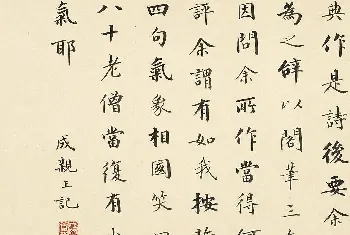 典作是詩後要余
為之辭以閣筆三年
因問余所作當得何
評余謂有如我按
四句氣象相國笑
八十老僧當復有
氣耶
成親王記